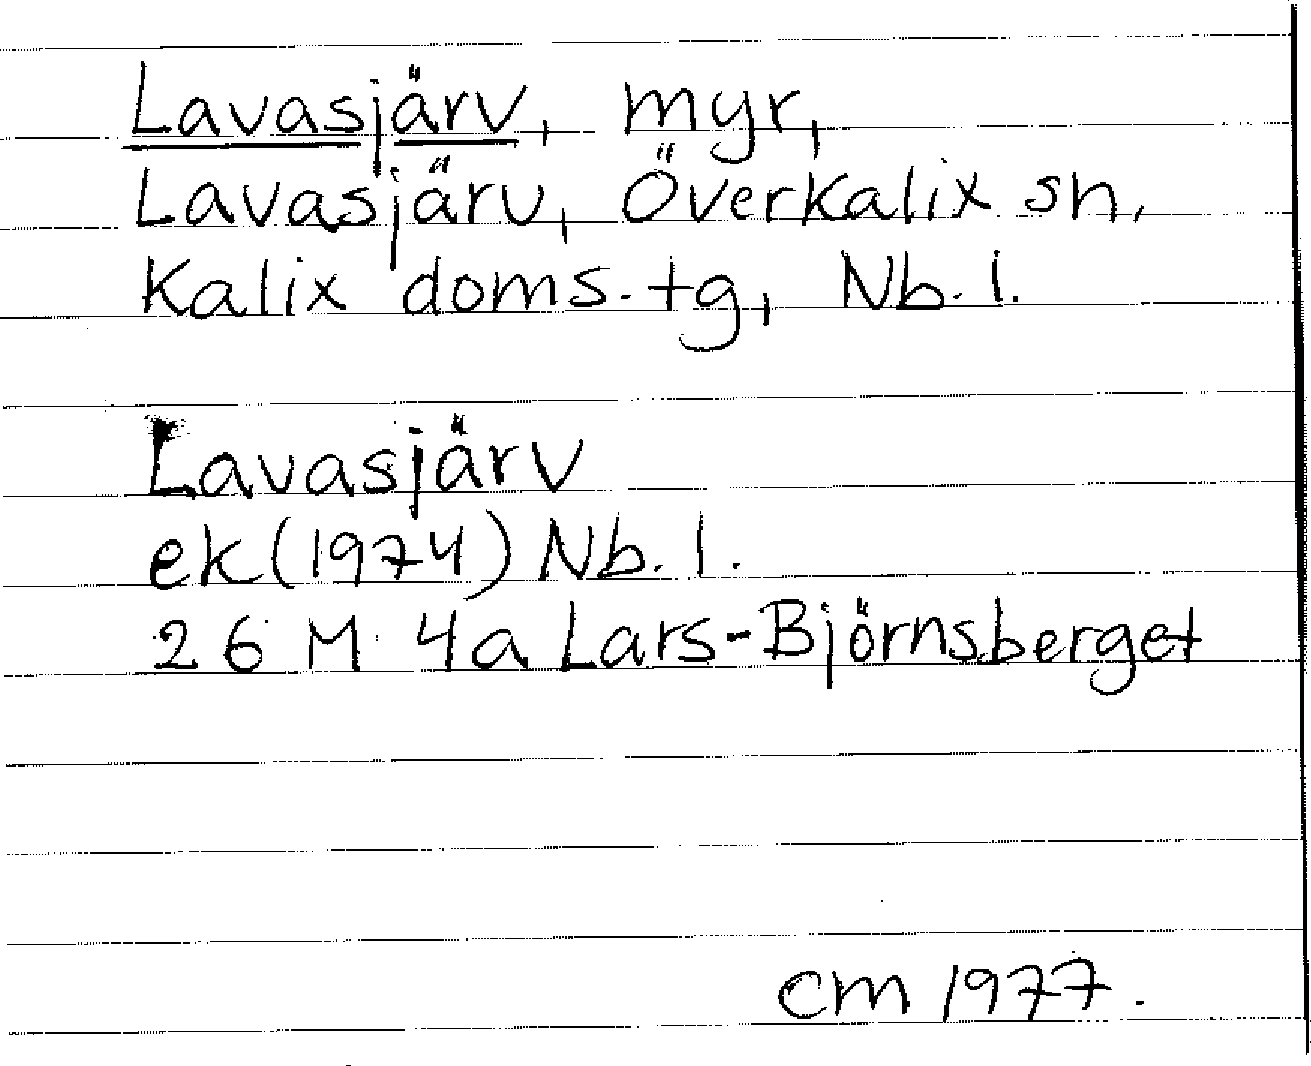 Lavasjärv, myr,
Lavasjärv, Överkalix sn,
Kalix doms.tg, Nb. l.
Lavasjärv
ek (1974) Nb. l.
26 M 4a Lars-Björnsberget
cm 1977.